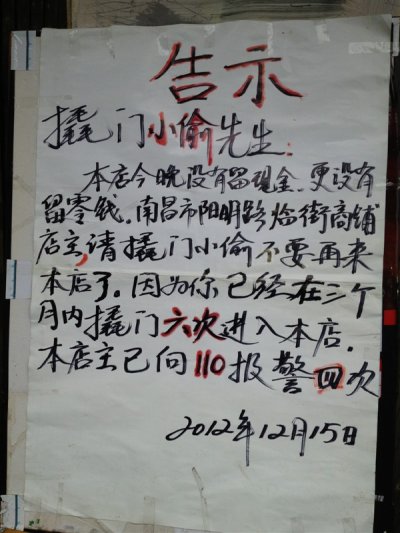 告示
撬门小偷先生:
本店今晚没有留现金.更没有
留零钱.南昌市阳明路临街商铺
店主,请撬门小偷不要再来
本店了.因为你已经在三个
月内撬门六次进入本店.
本店主已向110报警四次
2012年12月15日